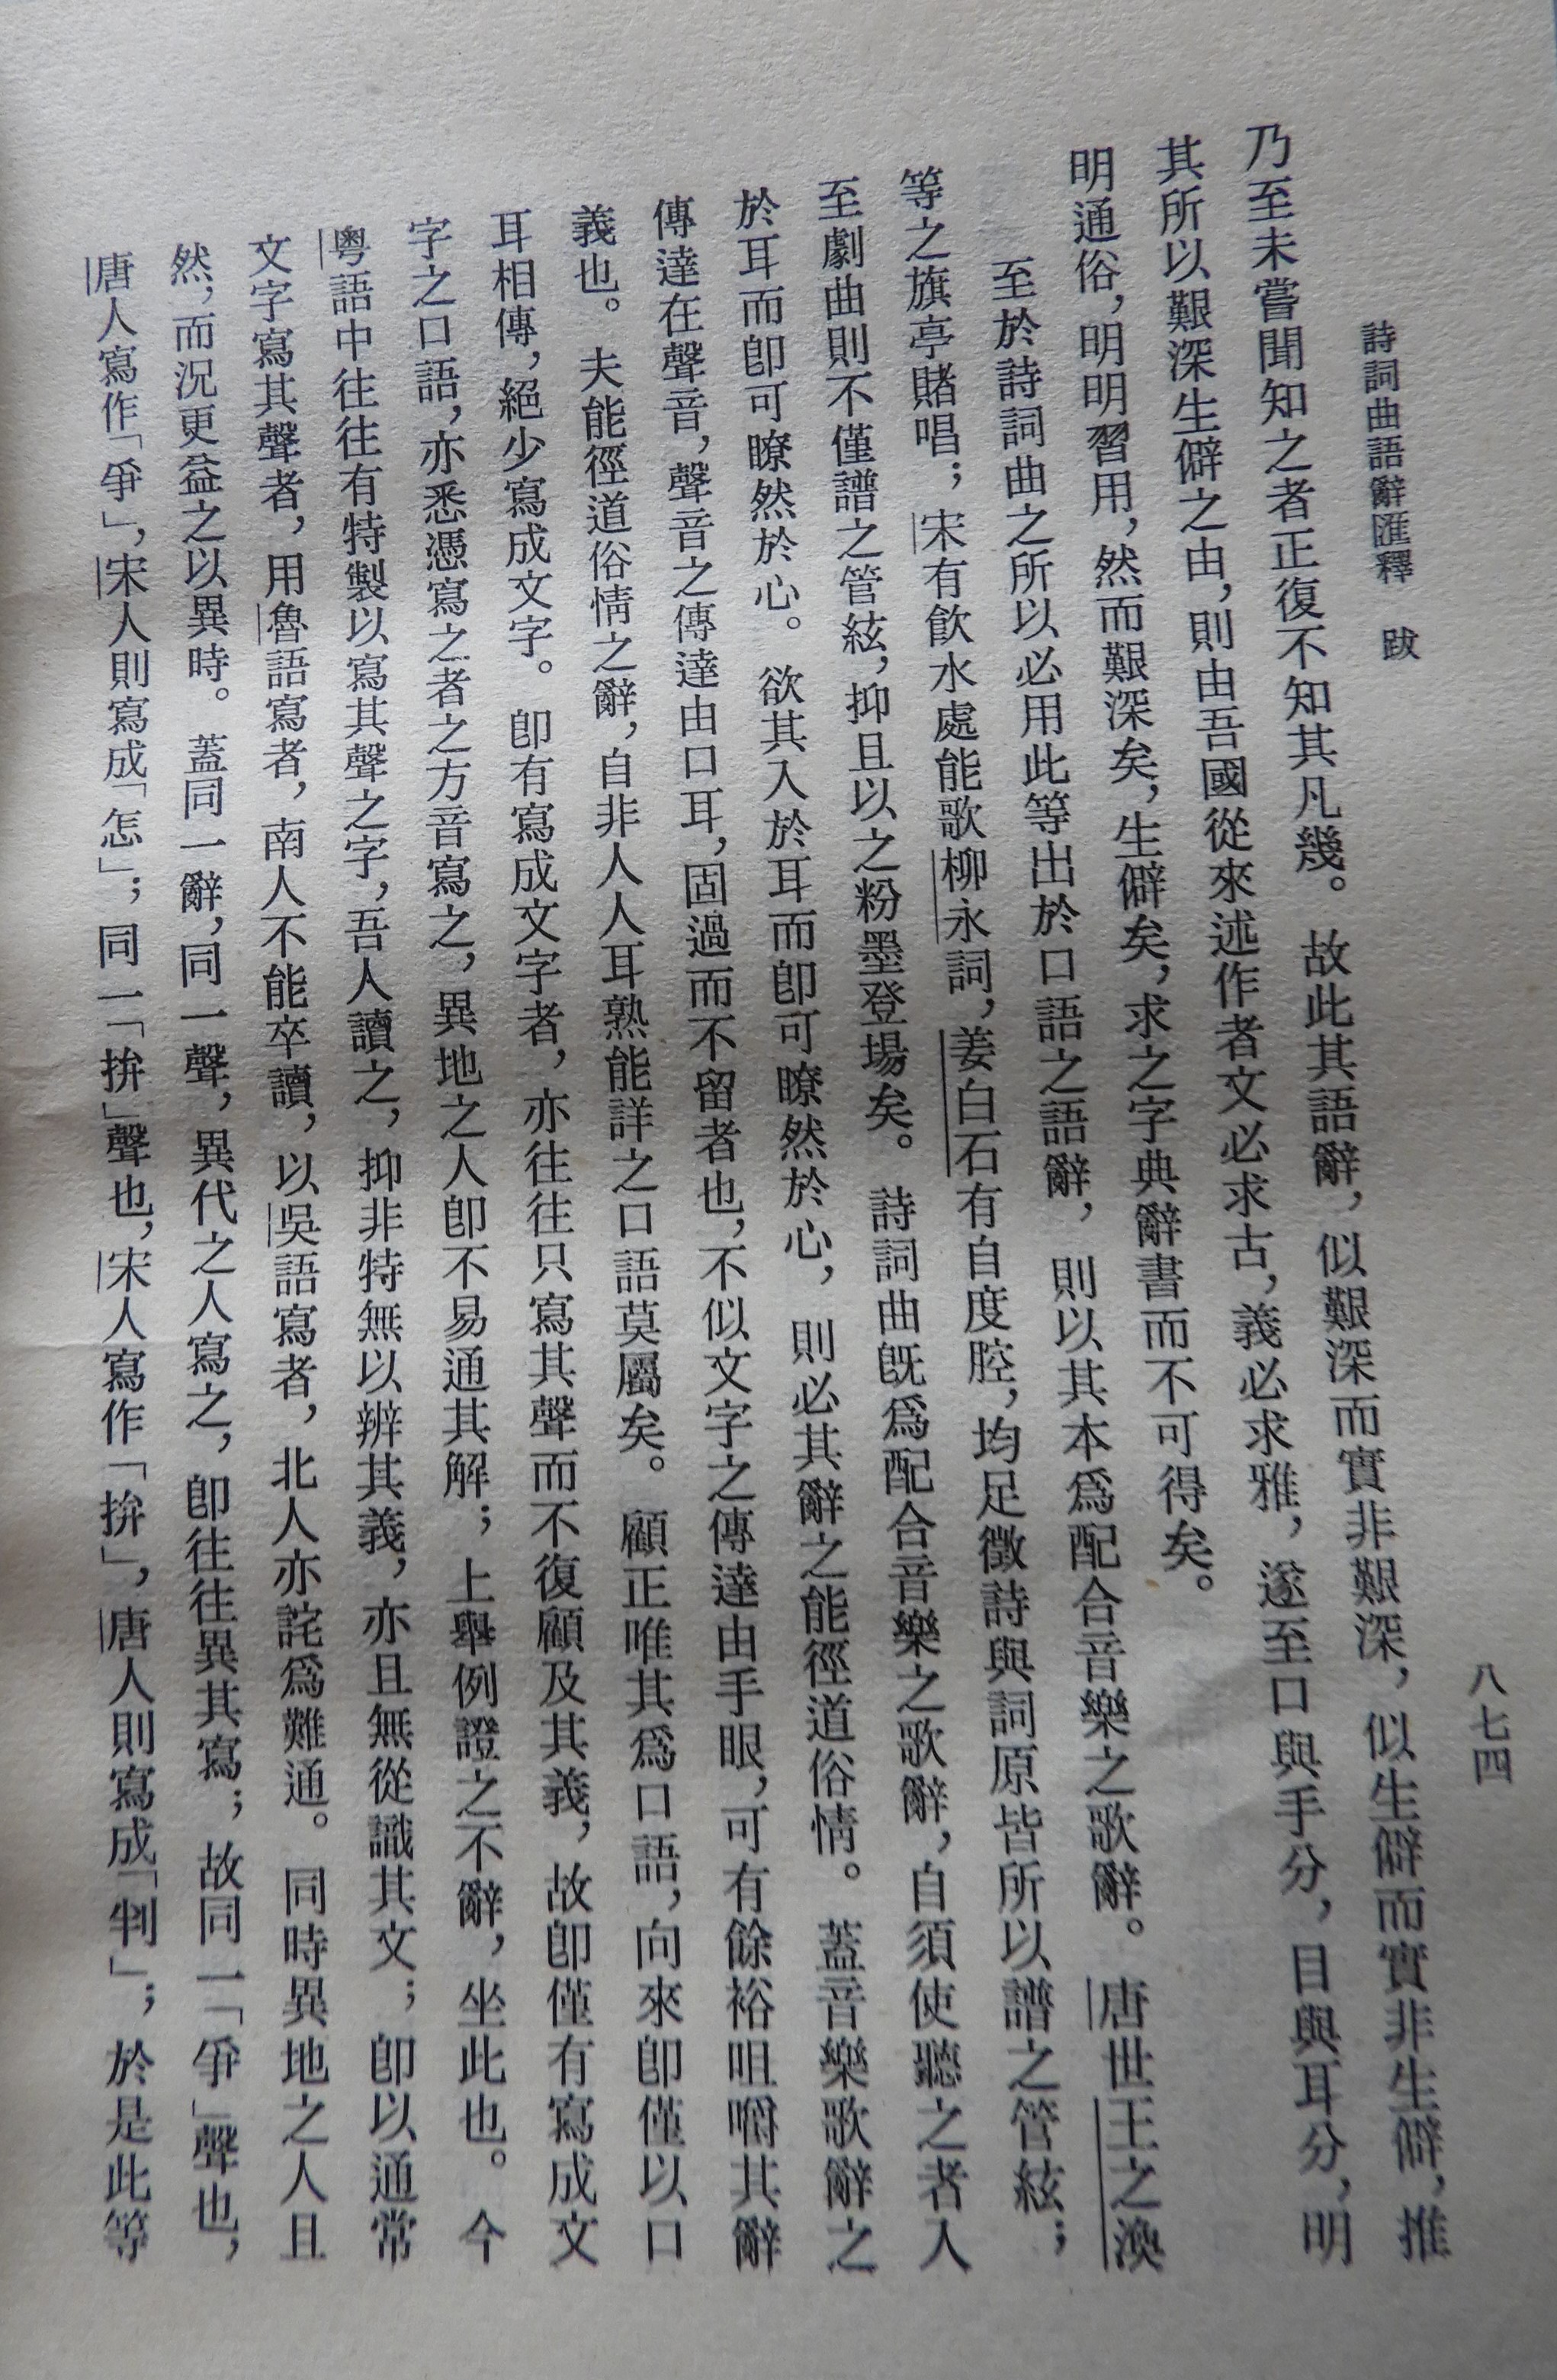 詩詞曲語辭匯釋　跋
八七四
乃至未嘗聞知之者正復不知其凡幾。故此其語辭，似艱深而實非艱深，似生僻而實非生僻，推
其所以艱深生僻之由，則由吾國從來述作者文必求古，義必求雅，遂至口與手分，目與耳分，明
明通俗，明明習用，然而艱深矣，生僻矣，求之字典辭書而不可得矣。
至於詩詞曲之所以必用此等出於口語之語辭，則以其本爲配合音樂之歌辭。唐世王之渙
等之旗亭賭唱；宋有飲水處能歌柳永詞，姜白石有自度腔，均足徵詩與詞原皆所以譜之管絃；
至劇曲則不僅譜之管絃，抑且以之粉墨登場矣。詩詞曲旣爲配合音樂之歌辭，自須使聽之者入
於耳而卽可瞭然於心。欲其入於耳而卽可瞭然於心，則必其辭之能徑道俗情。蓋音樂歌辭之
傳達在聲音，聲音之傳達由口耳，固過而不留者也，不似文字之傳達由手眼，可有餘裕咀嚼其辭
義也。夫能徑道俗情之辭，自非人人耳熟能詳之口語莫屬矣。顧正唯其爲口語，向來卽僅以口
耳相傳，絕少寫成文字。卽有寫成文字者，亦往往只寫其聲而不復顧及其義，故卽僅有寫成文
字之口語，亦悉憑寫之者之方音寫之，異地之人卽不易通其解；上舉例證之不辭，坐此也。今
粵語中往往有特製以寫其聲之字，吾人讀之，抑非特無以辨其義，亦且無從識其文；卽以通常
文字寫其聲者，用魯語寫者，南人不能卒讀，以吳語寫者，北人亦詫爲難通。同時異地之人且
然，而況更益之以異時。蓋同一辭，同一聲，異代之人寫之，卽往往異其寫；故同一「爭」聲也，
唐人寫作「爭」，宋人則寫成「怎」；同一「拚」聲也，宋人寫作「拚」，唐人則寫成「判」；於是此等